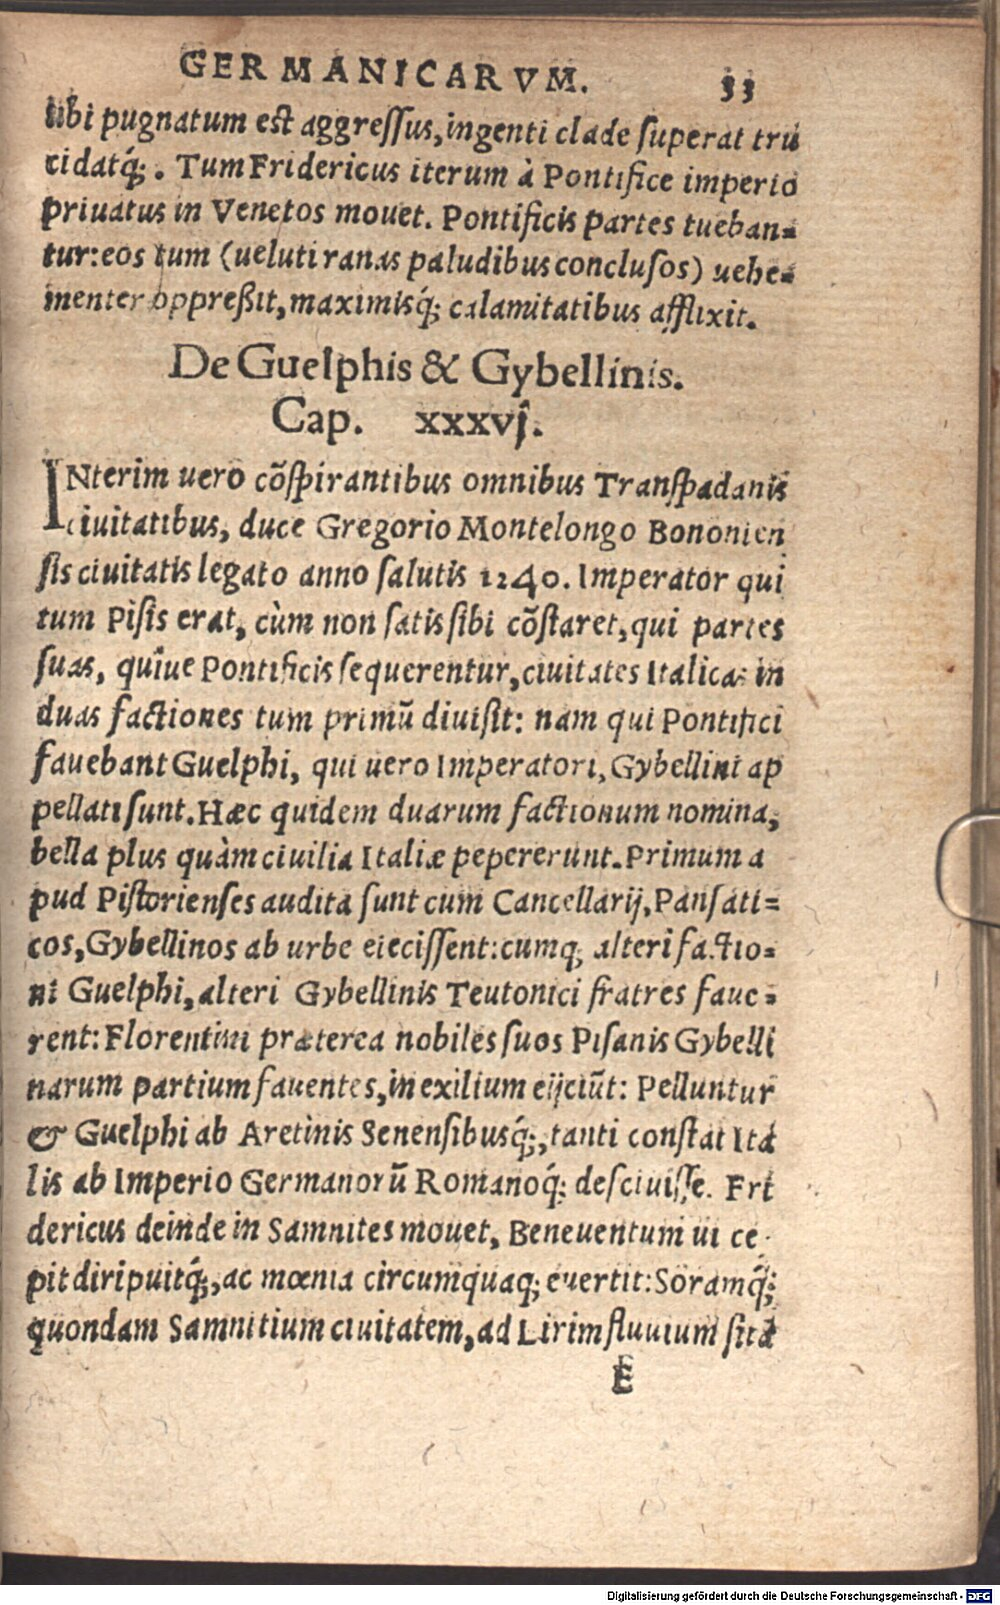 GERMANICARVM. 33
ubi pugnatum est aggreſſus, ingenti clade ſuperat tru
cidatq́;. Tum Fridericus iterum à Pontifice imperio
priuatus in Venetos mouet. Pontificis partes tueban-
tur: eos tum (ueluti ranas paludibus concluſos) uehe-
menter oppreßit, maximisq́; calamitatibus afflixit.
De Guelphis & Gybellinis.
Cap. xxxvj.
INterim uero cõſpirantibus omnibus Tranſpadanis
ciuitatibus, duce Gregorio Montelongo Bononien
ſis ciuitatis legato anno ſalutis 1240. Imperator qui
tum Piſis erat, cùm non ſatis ſibi cõſtaret, qui partes
ſuas, quîue Pontificis ſequerentur, ciuitates Italicas in
duas factiones tum primũ diuiſit: nam qui Pontifici
fauebant Guelphi, qui uero Imperatori, Gybellini ap
pellati ſunt. Hæc quidem duarum factionum nomina,
bella plus quàm ciuilia Italiæ pepererunt. Primum a
pud Piſtorienſes audita ſunt cum Cancellarij, Panſati=
cos, Gybellinos ab urbe eieciſſent: cumq; alteri factio=
ni Guelphi, alteri Gybellinis Teutonici fratres faue=
rent: Florentini præterea nobiles ſuos Piſanis Gybelli
narum partium fauentes, in exilium eijciũt: Pelluntur
& Guelphi ab Aretìnis Senenſibusq́;, tanti conſtat Ita
lis ab Imperio Germanorũ Romanoq́; deſciuiſſe. Fri
dericus deinde in Samnites mouet, Beneuentum ui ce-
pit diripuitq́;, ac mœnia circumquaq; euertit: Soramq́;
quondam Samnitium ciuitatem, ad Lirim fluuium ſitã
E
Digitalisierung gefördert durch die Deutsche Forschungsgemeinschaft - DFG